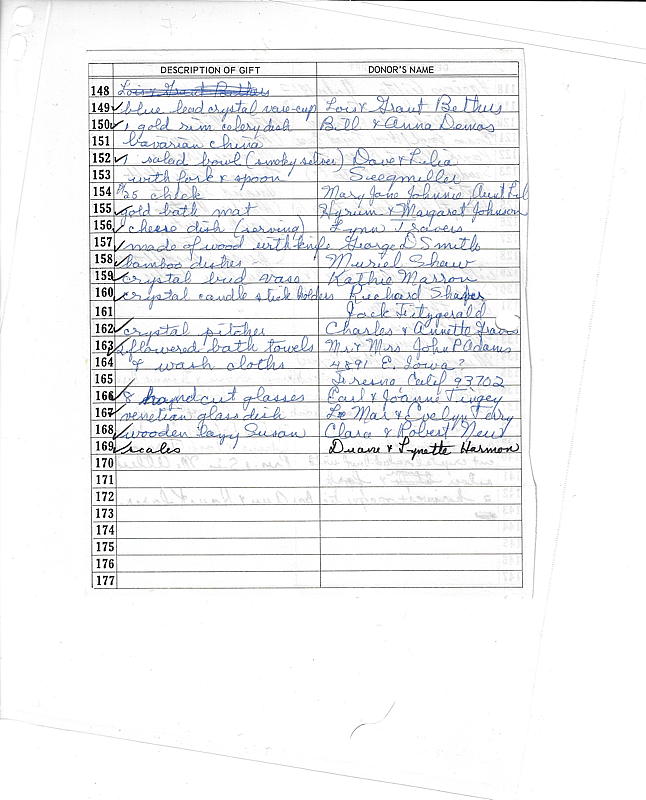 DESCRIPTION OF GIFT DONOR'S NAME
148 Lois & Grant Bethus
149 ✓ blue lead crystal vase-cup Lois & Grant Bethus
150 ✓ 1 gold rim celery dish Bill & Anna Demas
151 bavarian china
152 ✓ 1 salad bowl (smoky silver) Dave & Lilia
153 with fork & spoon Siegmiller
154 $25 check Mary Jane Johnnie Aunt Lil
155 ✓ gold bath mat Hyrum & Margaret Johnson
156 ✓ cheese dish (serving) Lynn Travers
157 ✓ made of wood with knife George D Smith
158 ✓ bamboo dishes - Muriel Shaw
159 ✓ crystal bud vase Kathie Marron
160 ✓ crystal candle stick holders Richard Shafer
161 Jack Fitzgerald
162 ✓ crystal pitcher Charles & Annette
163 ✓ 2 flowered bath towels Mr & Mrs John P Adams
164 & wash cloths 4891 E. Iowa?
165 Fresno Calif 93702
166 ✓ 8 hand cut glasses Earl & Joanne Tingey
167 ✓ venetian glass dish Le Mar & Evelyn
168 ✓ wooden lazy Susan Clara & Robert
169 ✓ scales Duane & Lynette Harmon
170
171
172
173
174
175
176
177